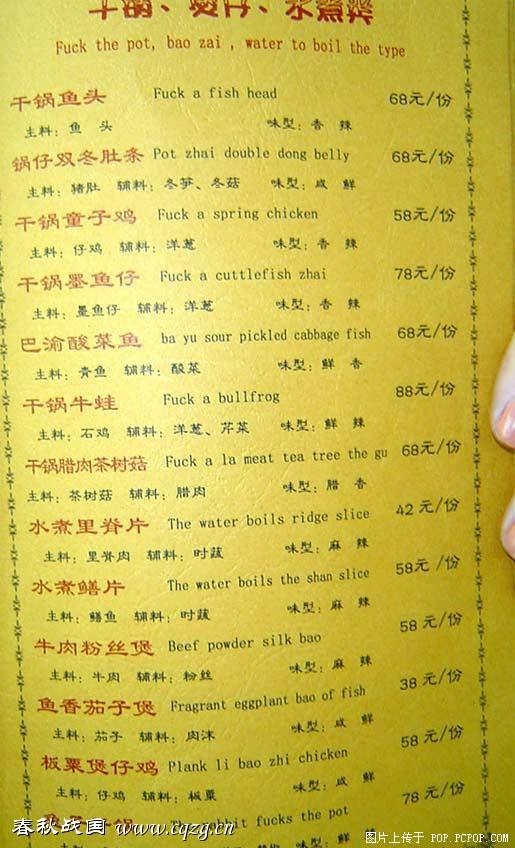 干锅、煲仔、水煮类
Fuck the pot, bao zai , water to boil the type
干锅鱼头 Fuck a fish head 68元/份
主料: 鱼 头 味型: 香 辣
锅仔双冬肚条 Pot zhai double dong belly 68元/份
主料: 猪肚 辅料: 冬笋、冬菇 味型: 咸 鲜
干锅童子鸡 Fuck a spring chicken 58元/份
主料: 仔鸡 辅料: 洋葱 味型: 香 辣
干锅墨鱼仔 Fuck a cuttlefish zhai 78元/份
主料: 墨鱼仔 辅料: 洋葱 味型: 香 辣
巴渝酸菜鱼 ba yu sour pickled cabbage fish 68元/份
主料: 青鱼 辅料: 酸菜 味型: 鲜 香
干锅牛蛙 Fuck a bullfrog 88元/份
主料: 石鸡 辅料: 洋葱、芹菜 味型: 鲜 辣
干锅腊肉茶树菇 Fuck a la meat tea tree the gu 68元/份
主料: 茶树菇 辅料: 腊肉 味型: 腊 香
水煮里脊片 The water boils ridge slice 42元/份
主料: 里脊肉 辅料: 时蔬 味型: 麻 辣
水煮鳝片 The water boils the shan slice 58元/份
主料: 鳝鱼 辅料: 时蔬 味型: 麻 辣
牛肉粉丝煲 Beef powder silk bao 58元/份
主料: 牛肉 辅料: 粉丝 味型: 麻 辣
鱼香茄子煲 Fragrant eggplant bao of fish 38元/份
主料: 茄子 辅料: 肉沫 味型: 咸 鲜
板栗煲仔鸡 Plank li bao zhi chicken 58元/份
主料: 仔鸡 辅料: 板栗 味型: 咸 鲜
rabbit fucks the pot 78元/份
春秋战国 www.cqzg.cn
图片上传于 POP.PCPOP.COM